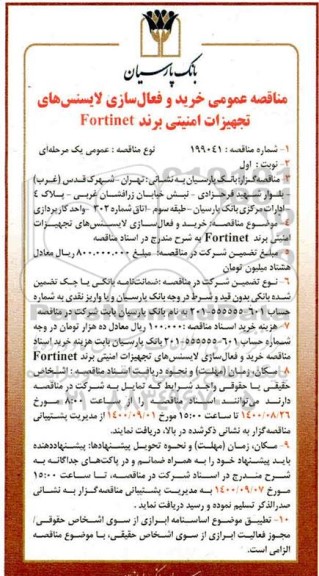 بانک پارسیان
مناقصه عمومی خرید و فعال‌سازی لایسنس‌های
تجهیزات امنیتی برند Fortinet
۱- شماره مناقصه : ۱۹۹۰۴۱ نوع مناقصه : عمومی یک مرحله‌ای
۲- نوبت : اول
۳- مناقصه‌گزار: بانک پارسیان به نشانی: تهران - شهرک قدس (غرب)
- بلوار شهید فرحزادی - نبش خیابان زرافشان غربی - پلاک ۴
- ادارات مرکزی بانک پارسیان - طبقه سوم - اتاق شماره ۳۰۲ - واحد کارپردازی
۴- موضوع مناقصه: خرید و فعال‌سازی لایسنس‌های تجهیزات
امنیتی برند Fortinet به شرح مندرج در اسناد مناقصه
۵- مبلغ تضمین شرکت در مناقصه: مبلغ ۸۰۰.۰۰۰.۰۰۰ ریال معادل
هشتاد میلیون تومان
۶- نوع تضمین شرکت در مناقصه: ضمانت‌نامه بانکی یا چک تضمین
شده بانکی بدون قید و شرط در وجه بانک پارسیان و یا واریز نقدی به شماره
حساب ۶۰۱-۵۵۵۵۵۵-۲۰۱ به نام بانک پارسیان بابت شرکت در مناقصه
۷- هزینه خرید اسناد مناقصه: ۱۰۰.۰۰۰ ریال معادل ده هزار تومان در وجه
شماره حساب ۶۰۱-۵۵۵۵۵۵-۲۰۱ بانک پارسیان بابت هزینه خرید اسناد
مناقصه خرید و فعال‌سازی لایسنس‌های تجهیزات امنیتی برند Fortinet
۸- مکان، زمان (مهلت) و نحوه دریافت اسناد مناقصه : اشخاص
حقیقی یا حقوقی واجد شرایط که تمایل به شرکت در مناقصه
دارند می‌توانند اسناد مناقصه را از ساعت ۸:۰۰ مورخ
۱۴۰۰/۰۸/۲۶ تا ساعت ۱۵:۰۰ مورخ ۱۴۰۰/۰۹/۰۱ از مدیریت پشتیبانی
مناقصه‌گزار به نشانی ذکرشده در بالا، دریافت نمایند.
۹- مکان، زمان (مهلت) و نحوه تحویل پیشنهادها: پیشنهاددهنده
باید پیشنهاد خود را به همراه ضمائم و در پاکت‌های جداگانه به
شرح مندرج در اسناد شرکت در مناقصه، تا ساعت ۱۵:۰۰
مورخ ۱۴۰۰/۰۹/۰۷ به مدیریت پشتیبانی مناقصه‌گزار به نشانی
صدرالذکر تسلیم نموده و رسید دریافت نماید .
۱۰- تطبیق موضوع اساسنامه ابرازی از سوی اشخاص حقوقی/
مجوز فعالیت ابرازی از سوی اشخاص حقیقی، با موضوع مناقصه
الزامی است.